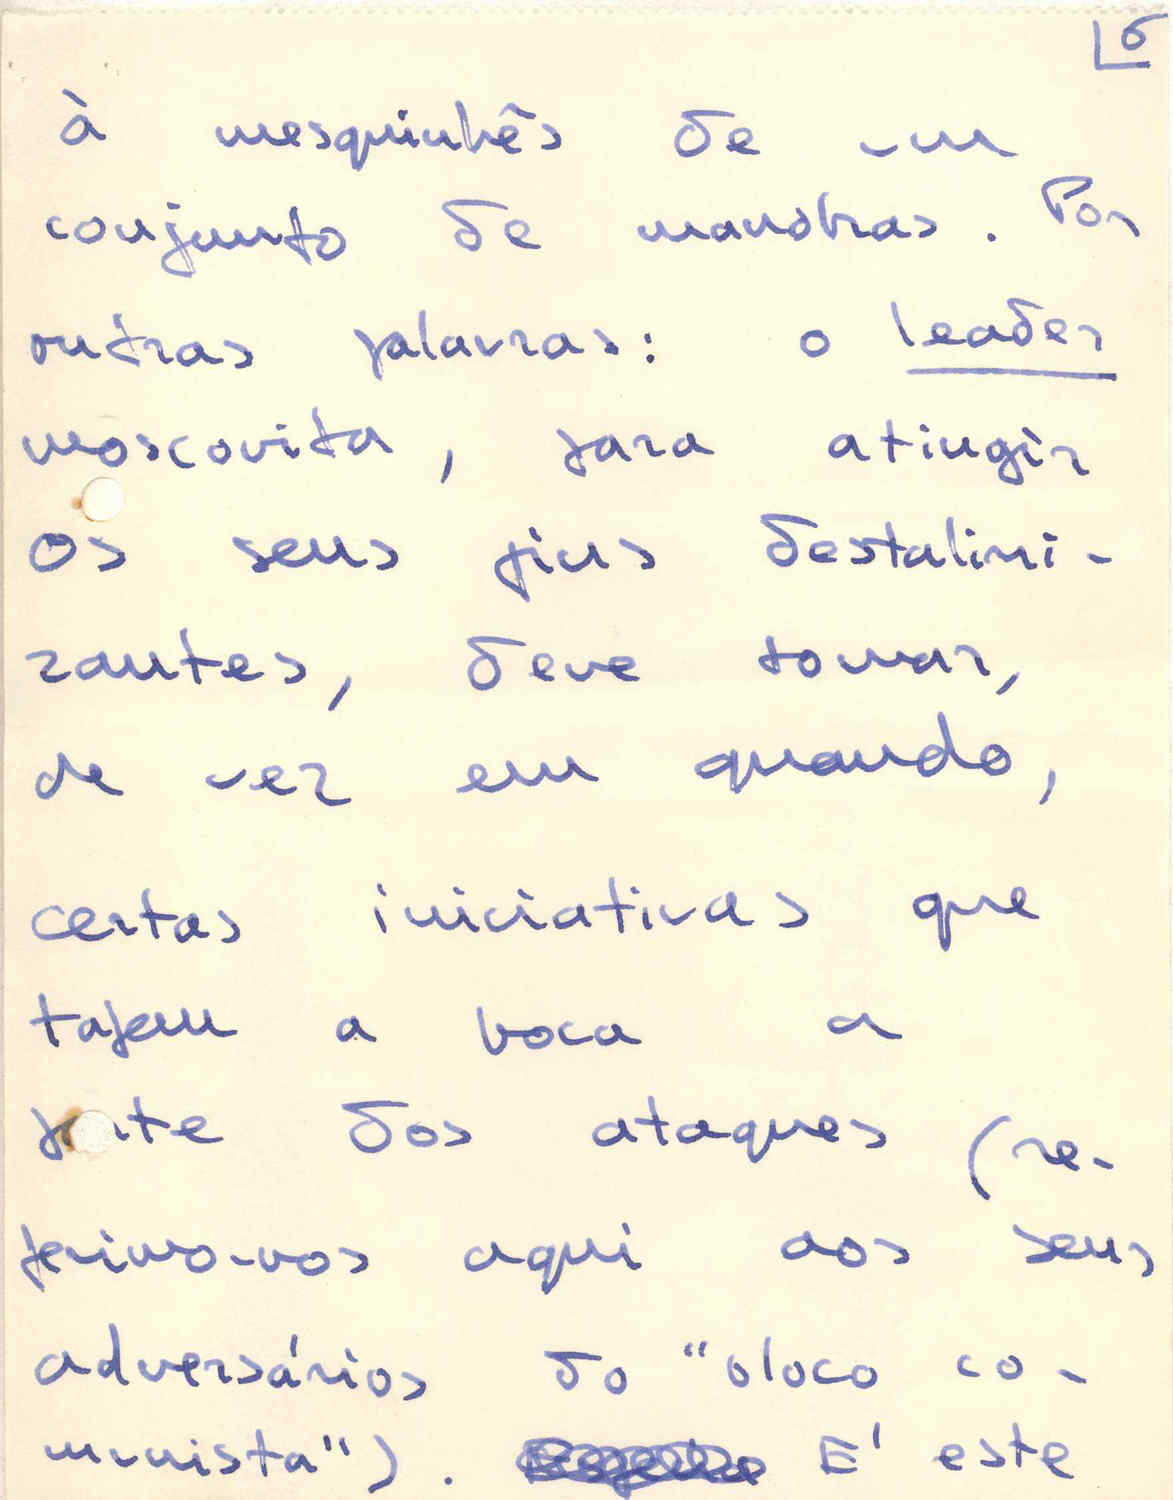 6
à mesquinhês de um
conjunto de manobras. Por
outras palavras: o leader
moscovita, para atingir
os seus fins destalini-
zantes, deve tomar,
de vez em quando,
certas iniciativas que
tapem a boca a
parte dos ataques (re-
ferimo-nos aqui aos seus
adversários do "bloco co-
munista"). É este